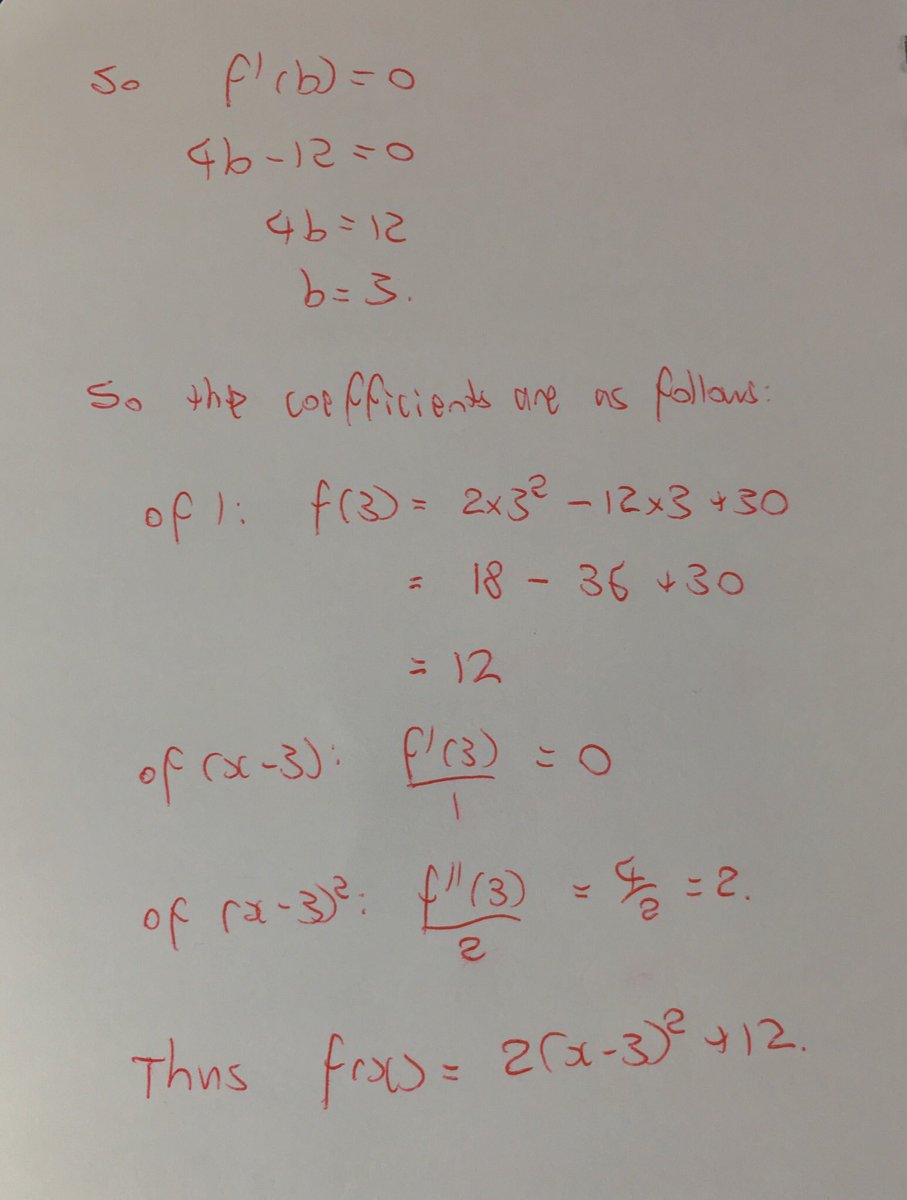 So f'(b) = 0
4b - 12 = 0
4b = 12
b = 3.
So the coefficients are as follows:
of 1: f(3) = 2×3² - 12×3 + 30
= 18 - 36 + 30
= 12
of (x-3): f'(3)/1 = 0
of (x-3)²: f''(3)/2 = 4/2 = 2.
Thus f(x) = 2(x-3)² + 12.